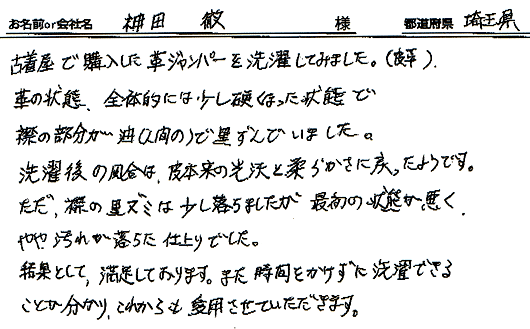 お名前or会社名 神田 徹 様 都道府県 埼玉県
古着屋で購入した革ジャンパーを洗濯してみました。(皮革).
革の状態、全体的には少し硬くなった状態で
襟の部分が油(人間の)で黒ずんでいました。
洗濯後の風合は、皮本来の光沢と柔らかさに戻ったようです。
ただ、襟の黒ズミは少し落ちましたが最初の状態が悪く、
やや汚れが落ちた仕上りでした。
結果として、満足しております。また時間をかけずに洗濯できる
ことが分かり、これからも愛用させていただきます。